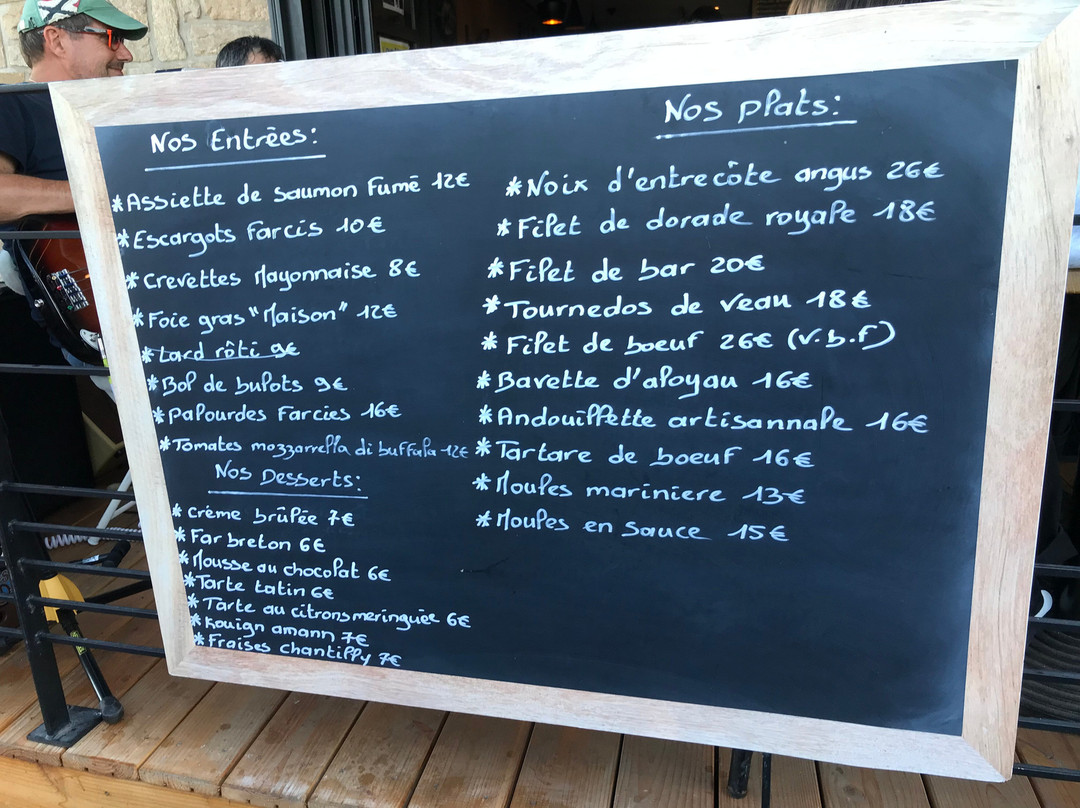 Nos Entrées:
*Assiette de saumon Fumé 12€
*Escargots farcis 10€
*Crevettes Mayonnaise 8€
*Foie gras "Maison" 12€
*Lard rôti 9€
*Bol de bulots 9€
*Palourdes Farcies 16€
*Tomates mozzarrella di buffala 12€
Nos Desserts:
*Crème brûlée 7€
*Far breton 6€
*Mousse au chocolat 6€
*Tarte tatin 6€
*Tarte au citrons meringuée 6€
*Kouign amann 7€
*Fraises chantilly 7€
Nos plats:
*Noix d'entrecôte angus 26€
*Filet de dorade royale 18€
*Filet de bar 20€
*Tournedos de veau 18€
*Filet de boeuf 26€ (v.b.f)
*Bavette d'aloyau 16€
*Andouillette artisannale 16€
*Tartare de boeuf 16€
*Moules mariniere 13€
*Moules en sauce 15€